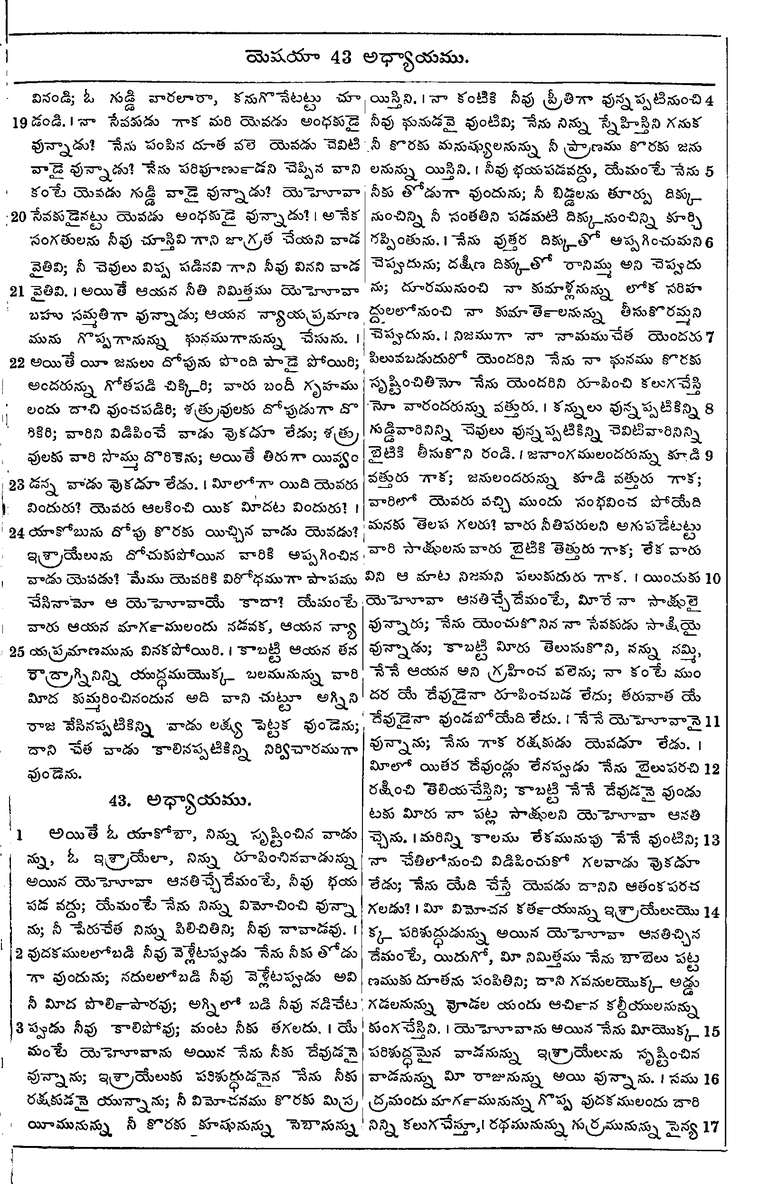 యెషయా 43 అధ్యాయము.
వినండి; ఓ గుడ్డి వారలారా, కనుగొనేటట్టు చూ
19 డండి. । నా సేవకుడు గాక మరి యెవడు అంధకుడై
వున్నాడు? నేను పంపిన దూత వలె యెవడు చెవిటి
వాడై వున్నాడు? నేను పరిపూణుకాడని చెప్పిన వాని
కంటే యెవడు గుడ్డి వాడై వున్నాడు? యెహోవా
20 సేవకుడైనట్టు యెవడు అంధకుడై వున్నాడు? । అనేక
సంగతులను నీవు చూస్తివి గాని జాగ్రత చేయని వాడ
వైతివి; నీ చెవులు విప్ప పడినవి గాని నీవు వినని వాడ
21 వైతివి. । అయితే ఆయన నీతి నిమిత్తము యెహోవా
బహు సమ్మతిగా వున్నాడు; ఆయన న్యాయప్రమాణ
మును గొప్పగానున్ను ఘనముగానున్ను చేసును. ।
22 అయితే యీ జనులు దోపును పొంది పాడై పోయిరి;
అందరున్ను గోతపడి చిక్కిరి; వారు బందీ గృహము
లందు దాచి వుంచపడిరి; శత్రువులకు దోపుడుగా దొ
రికిరి; వారిని విడిపించే వాడు వొకడూ లేడు; శత్రు
వులకు వారి సొమ్ము దొరికెను; అయితే తిరుగా యివ్వం
23 డన్న వాడు వొకడూ లేడు. । మీలోగా యిది యెవరు
విందురు? యెవరు ఆలకించి యిక మీదట విందురు? ।
24 యాకోబును దోపు కొరకు యిచ్చిన వాడు యెవడు?
ఇశ్రాయేలును దోచుకుపోయిన వారికి అప్పగించిన
వాడు యెవడు? మేము యెవరికి విరోధముగా పాపము
చేసినామో ఆ యెహోవాయే కాదా? యేమంటే
వారు ఆయన మార్గములందు నడవక, ఆయన న్యా
25 యప్రమాణమును వినకపోయిరి. । కాబట్టి ఆయన తన
రౌద్రాగ్నినిన్ని యుద్ధముయొక్క బలమునున్ను వారి
మీద కుమ్మరించినందున అది వాని చుట్టూ అగ్నిని
రాజ వేసినప్పటికిన్ని వాడు లక్ష్య పెట్టక వుండెను;
దాని చేత వాడు కాలినప్పటికిన్ని నిర్విచారముగా
వుండెను.
43. అధ్యాయము.
1 అయితే ఓ యాకోబా, నిన్ను సృష్టించిన వాడు
న్ను, ఓ ఇశ్రాయేలా, నిన్ను రూపించినవాడున్ను
అయిన యెహోవా ఆనతిచ్చేదేమంటే, నీవు భయ
పడ వద్దు; యేమంటే నేను నిన్ను విమోచించి వున్నా
ను; నీ పేరుచేత నిన్ను పిలిచితిని; నీవు నావాడవు. ।
2 వుదకములలోబడి నీవు వెళ్లేటప్పుడు నేను నీకు తోడు
గా వుందును; నదులలోబడి నీవు వెళ్లేటప్పుడు అవి
నీ మీద పొలికాపారవు; అగ్నిలో బడి నీవు నడిచేట
3 ప్పుడు నీవు కాలిపోవు; మంట నీకు తగలదు. । యే
మంటే యెహోవాను అయిన నేను నీకు దేవుడనై
వున్నాను; ఇశ్రాయేలుకు పరిశుద్ధుడనైన నేను నీకు
రక్షకుడనై యున్నాను; నీ విమోచనము కొరకు మిస్ర
యీమునున్ను నీ కొరకు కూషునున్ను సెబానున్ను
యిస్తిని. । నా కంటికి నీవు ప్రీతిగా వున్నప్పటినుంచి 4
నీవు ఘనుడవై వుంటివి; నేను నిన్ను స్నేహిస్తిని గనుక
నీ కొరకు మనుష్యులనున్ను నీ ప్రాణము కొరకు జను
లనున్ను యిస్తిని. । నీవు భయపడవద్దు, యేమంటే నేను 5
నీకు తోడుగా వుందును; నీ బిడ్డలను తూర్పు దిక్కు
నుంచిన్ని నీ సంతతిని పడమటి దిక్కునుంచిన్ని కూర్చి
రప్పింతును. । నేను వుత్తర దిక్కుతో ఆప్పగించుమని 6
చెప్పుదును; దక్షిణ దిక్కుతో రానిమ్ము అని చెప్పుదు
ను; దూరమునుంచి నా కుమాళ్లనున్ను లోక సరిహ
ద్దులలోనుంచి నా కుమార్తెలనున్ను తీసుకొరమ్మని
చెప్పుదును. । నిజముగా నా నామముచేత యెందరు 7
పిలువబడుదురో యెందరిని నేను నా ఘనము కొరకు
సృష్టించితినో నేను యెందరిని రూపించి కలుగచేస్తి
నో వారందరున్ను వత్తురు. । కన్నులు వున్నప్పటికిన్ని 8
గుడ్డివారినిన్ని చెవులు వున్నప్పటికిన్ని చెవిటివారినిన్ని
బైటికి తీసుకొని రండి. । జనాంగములందరున్ను కూడి 9
వత్తురు గాక; జనులందరున్ను కూడి వత్తురు గాక;
వారిలో యెవరు వచ్చి ముందు సంభవించ పోయేది
మనకు తెలప గలరు? వారు నీతిపరులని అగుపడేటట్టు
వారి సాక్షులను వారు బైటికి తెత్తురు గాక; లేక వారు
విని ఆ మాట నిజమని పలుకుదురు గాక. । యిందుకు 10
యెహోవా ఆనతిచ్చేదేమంటే, మీరే నా సాక్షులై
వున్నారు; నేను యెంచుకొనిన నా సేవకుడు సాక్షియై
వున్నాడు; కాబట్టి మీరు తెలుసుకొని, నన్ను నమ్మి,
నేనే ఆయన అని గ్రహించ వలెను; నా కంటే ముం
దర యే దేవుడైనా రూపించబడ లేదు; తరువాత యే
దేవుడైనా వుండబోయేది లేదు. । నేనే యెహోవానై 11
వున్నాను; నేను గాక రక్షకుడు యెవడూ లేడు. ।
మీలో యితర దేవుండ్లు లేనప్పుడు నేను బైలుపరచి 12
రక్షించి తెలియచేస్తిని; కాబట్టి నేనే దేవుడనై వుండు
టకు మీరు నా పట్ల సాక్షులని యెహోవా ఆనతి
చ్చెను. । మరిన్ని కాలము లేకమునుపు నేనే వుంటిని; 13
నా చేతిలోనుంచి విడిపించుకో గలవాడు వొకడూ
లేడు; నేను యేది చేస్తే యెవడు దానిని ఆతంకపరచ
గలడు? । మీ విమోచన కర్తయున్ను ఇశ్రాయేలుయొ 14
క్క పరిశుద్ధుడున్ను అయిన యెహోవా ఆనతిచ్చిన
దేమంటే, యిదుగో, మీ నిమిత్తము నేను బాబెలు పట్ట
ణముకు దూతను పంపితిని; దాని గవనులయొక్క అడ్డు
గడలనున్ను వోడల యందు ఆర్చిన కల్దీయులనున్ను
కుంగచేస్తిని. । యెహోవాను అయిన నేను మీయొక్క 15
పరిశుద్ధమైన వాడనున్ను ఇశ్రాయేలును సృష్టించిన
వాడనున్ను మీ రాజునున్ను అయి వున్నాను. । సము 16
ద్రమందు మార్గమునున్ను గొప్ప వుదకములందు దారి
నిన్ని కలుగచేస్తూ, । రథమునున్ను గుర్రమునున్ను సైన్య 17